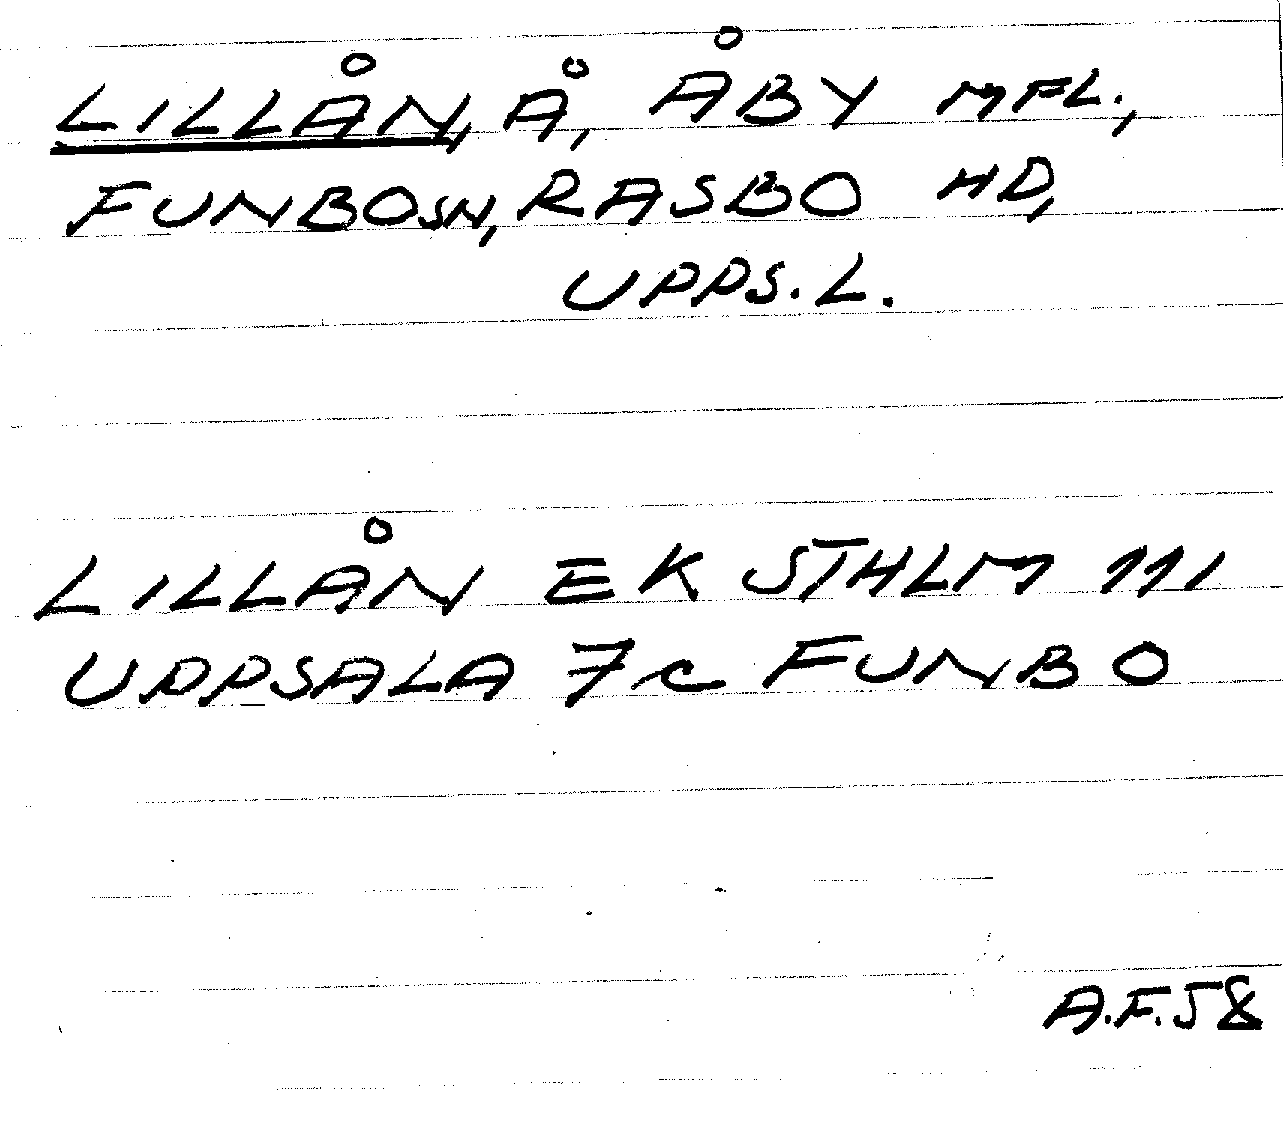 LILLÅN, Å, ÅBY MFL.,
FUNBO SN, RASBO HD,
UPPS. L.
LILLÅN EK STHLM 111
UPPSALA 7c FUNBO
A.F. 58